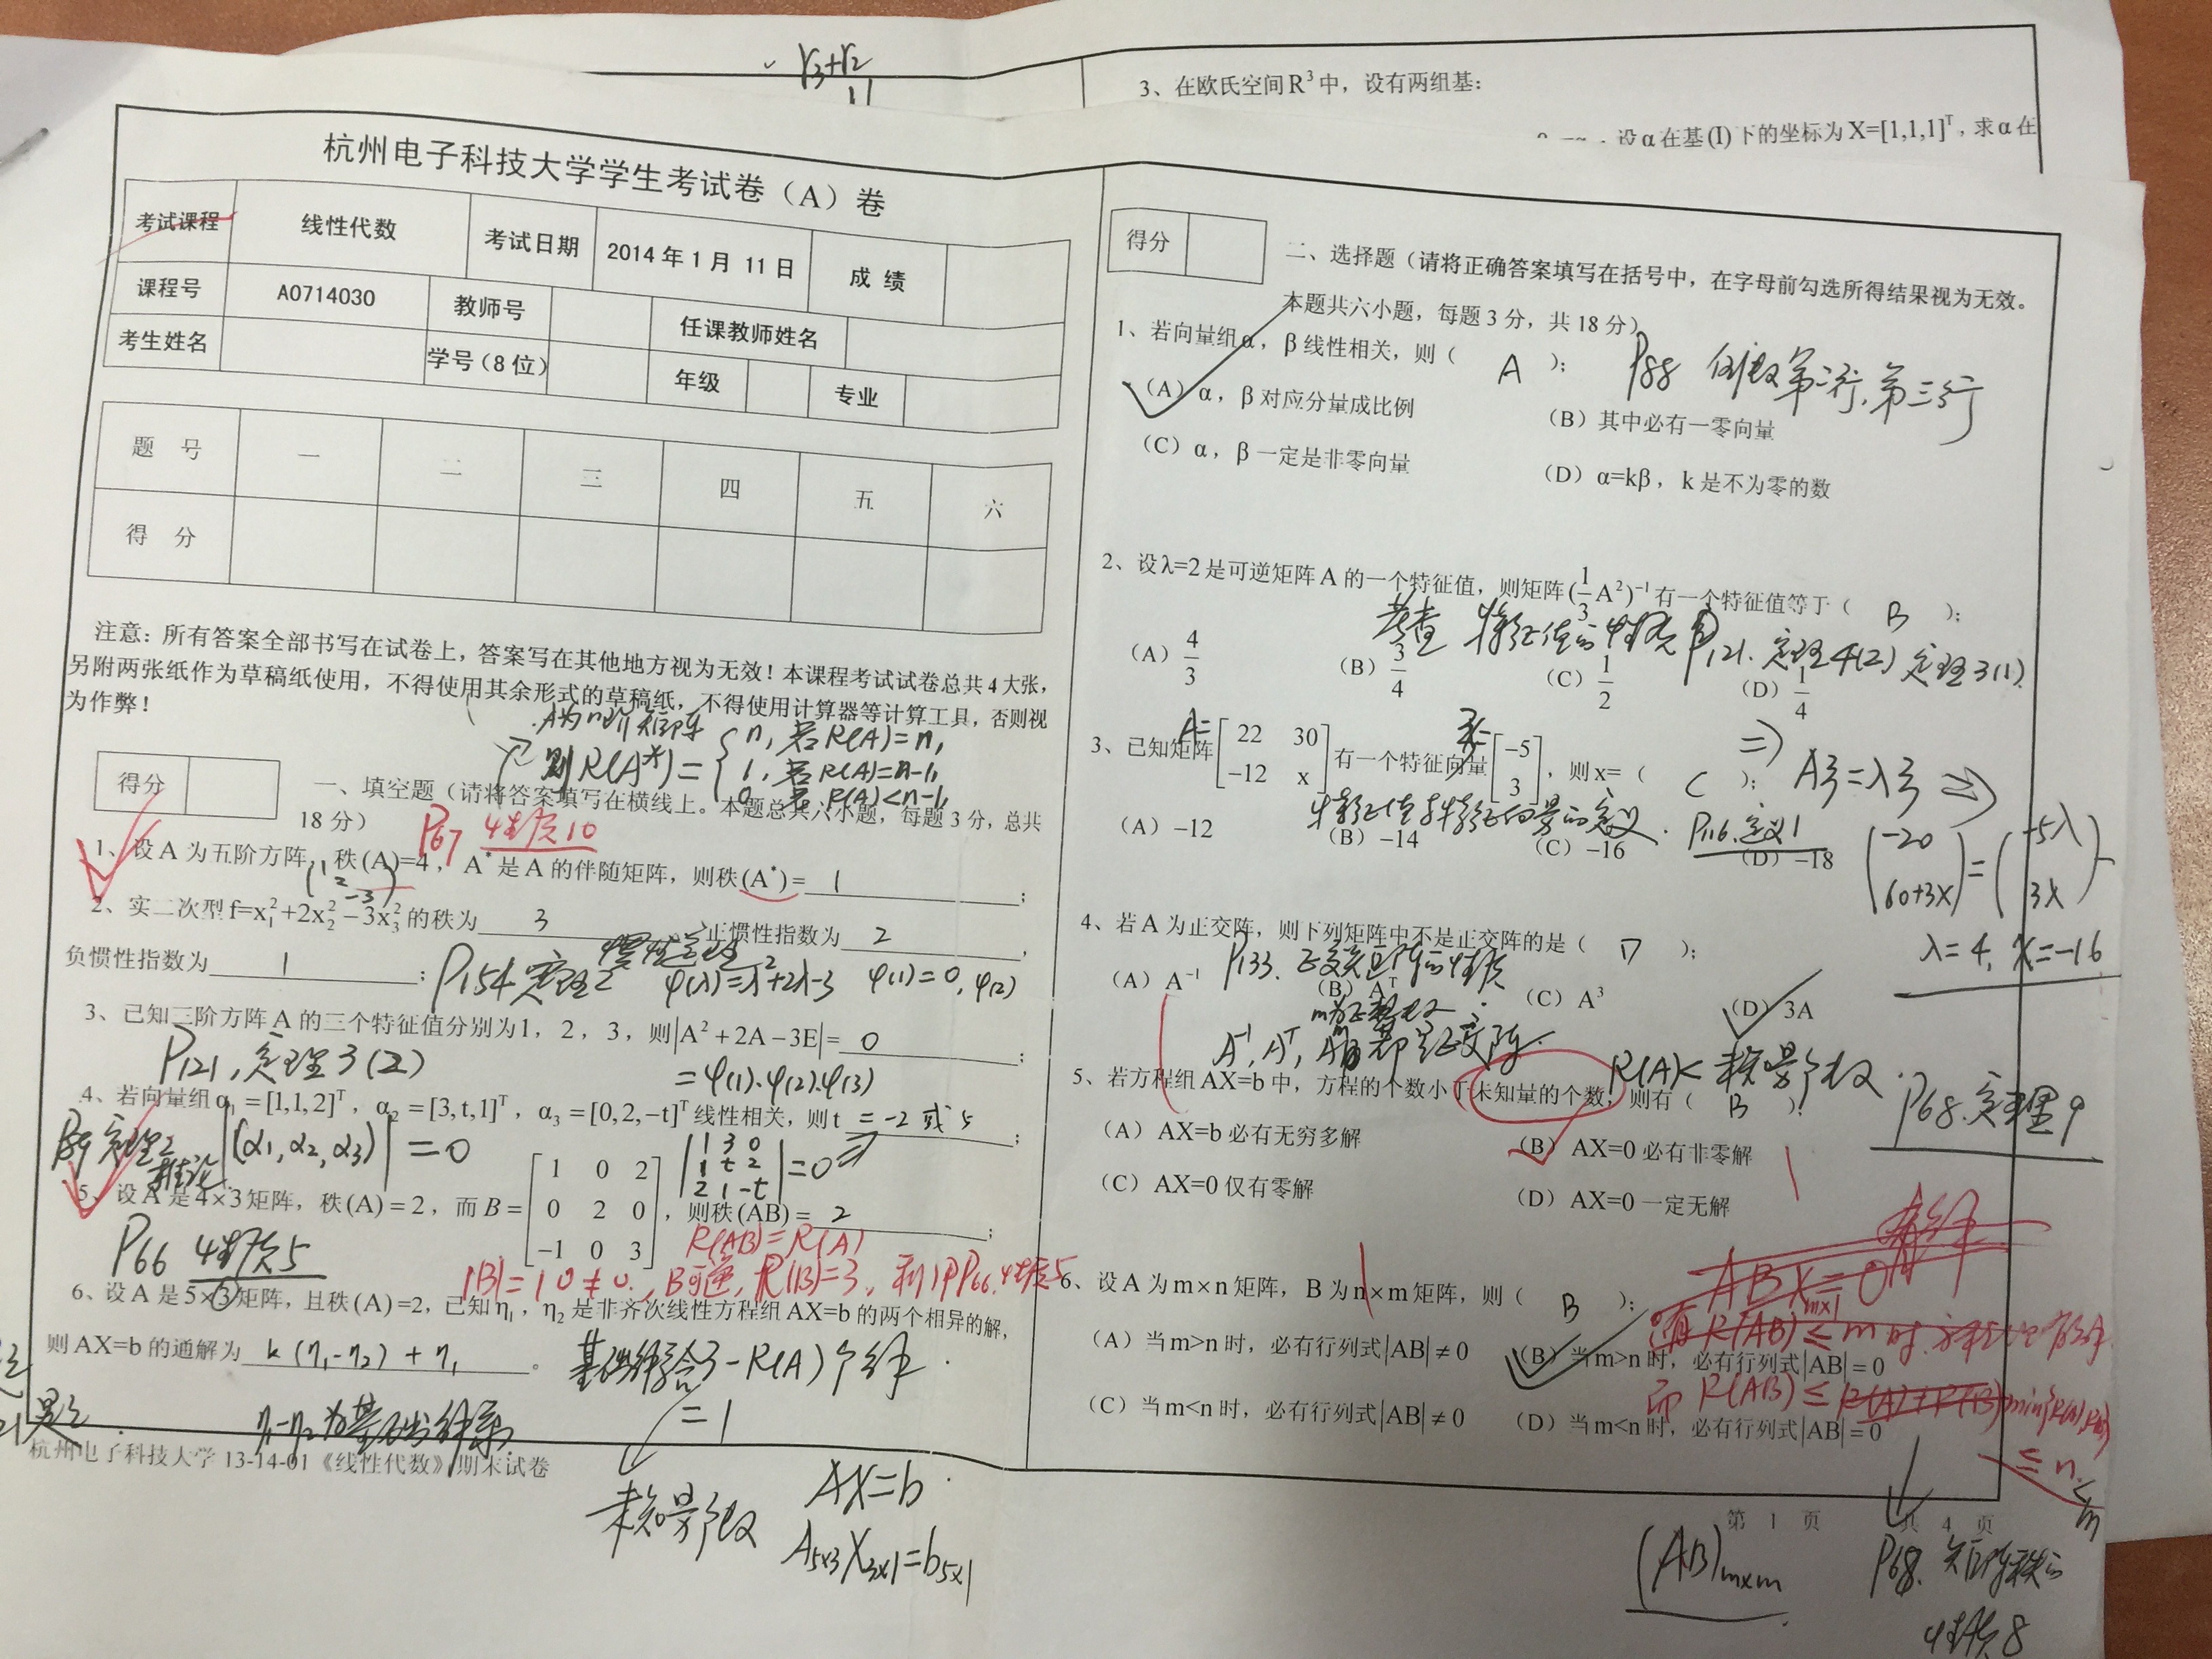 r₃+r₂
3、在欧氏空间R³中，设有两组基：
设α在基(I)下的坐标为X=[1,1,1]ᵀ，求α在
杭州电子科技大学学生考试卷（A）卷
考试课程 线性代数 考试日期 2014年1月11日 成绩
课程号 A0714030 教师号 任课教师姓名
考生姓名 学号(8位) 年级 专业
题号 一 二 三 四 五 六
得分
注意：所有答案全部书写在试卷上，答案写在其他地方视为无效！本课程考试试卷总共4大张，
另附两张纸作为草稿纸使用，不得使用其余形式的草稿纸，不得使用计算器等计算工具，否则视
为作弊！
A为n阶矩阵
则R(A*)= { n, 若R(A)=n,
1, 若R(A)=n-1,
0, 若R(A)<n-1,
得分
一、填空题（请将答案填写在横线上。本题总共六小题，每题3分，总共
18分）
P67 性质10
1、设A为五阶方阵，秩(A)=4，A*是A的伴随矩阵，则秩(A*)= 1 ；
(1 2 -3)
2、实二次型f=x₁²+2x₂²−3x₃²的秩为 3 正惯性指数为 2 ，
负惯性指数为 1 ；
P154 定理2 惯性定理
φ(λ)=λ²+2λ-3 φ(1)=0, φ(2)
3、已知三阶方阵A的三个特征值分别为1，2，3，则|A²+2A−3E|= 0 ；
P121, 定理3(2)
=φ(1)·φ(2)·φ(3)
4、若向量组α₁=[1,1,2]ᵀ，α₂=[3,t,1]ᵀ，α₃=[0,2,−t]ᵀ线性相关，则t =-2或5 ；
P89 定理2 推论 |(α₁,α₂,α₃)|=0
|1 3 0
1 t 2
2 1 -t|=0
5、设A是4×3矩阵，秩(A)=2，而B=[1 0 2
0 2 0
−1 0 3]，则秩(AB)= 2 ；
P66 性质5
R(AB)=R(A)
|B|=10≠0, B可逆, R(B)=3, 利用P66.性质5
6、设A是5×3矩阵，且秩(A)=2，已知η₁，η₂是非齐次线性方程组AX=b的两个相异的解，
则AX=b的通解为 k(η₁-η₂)+η₁ 。
基础解系含3-R(A)个解.
=1
η₁-η₂为基础解系
未知量个数
AX=b
A₅ₓ₃X₃ₓ₁=b₅ₓ₁
杭州电子科技大学13-14-01《线性代数》期末试卷
得分
二、选择题（请将正确答案填写在括号中，在字母前勾选所得结果视为无效。
本题共六小题，每题3分，共18分）
1、若向量组α，β线性相关，则（ A ）；
P88 倒数第二行,第三行
（A）α，β对应分量成比例 （B）其中必有一零向量
（C）α，β一定是非零向量 （D）α=kβ，k是不为零的数
2、设λ=2是可逆矩阵A的一个特征值，则矩阵(1/3 A²)⁻¹有一个特征值等于（ B ）；
考查 特征值的性质 P121. 定理4(2) 定理3(1)
（A）4/3 （B）3/4 （C）1/2 （D）1/4
3、已知矩阵 A= [22 30
−12 x]有一个特征向量[−5
3]，则x=（ C ）；
=> Aξ=λξ =>
特征值与特征向量的定义. P116.定义1
（A）−12 （B）−14 （C）−16 （D）−18
(-20
60+3x)=(-5λ
3λ)
λ=4, x=-16
4、若A为正交阵，则下列矩阵中不是正交阵的是（ D ）；
P133. 正交矩阵的性质
（A）A⁻¹ （B）Aᵀ （C）A³ （D）3A
m为正整数
A⁻¹, Aᵀ, Aᵐ都是正交阵.
5、若方程组AX=b中，方程的个数小于未知量的个数，则有（ B ）；
R(A)<未知量个数.
P68.定理9
（A）AX=b必有无穷多解 （B）AX=0必有非零解
（C）AX=0仅有零解 （D）AX=0一定无解
6、设A为m×n矩阵，B为n×m矩阵，则（ B ）；
ABXₘₓ₁=0
（A）当m>n时，必有行列式|AB|≠0 （B）当m>n时，必有行列式|AB|=0
（C）当m<n时，必有行列式|AB|≠0 （D）当m<n时，必有行列式|AB|=0
而R(AB)≤ min{R(A),R(B)}
≤n<m
第 1 页 共 4 页
(AB)ₘₓₘ
P68. 矩阵秩的
性质8